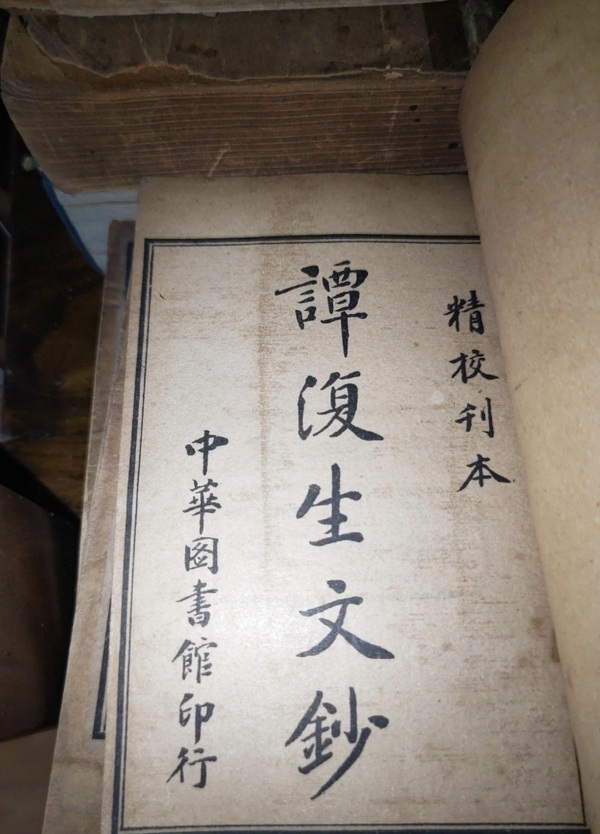 精校刊本
譚復生文鈔
中華圖書館印行